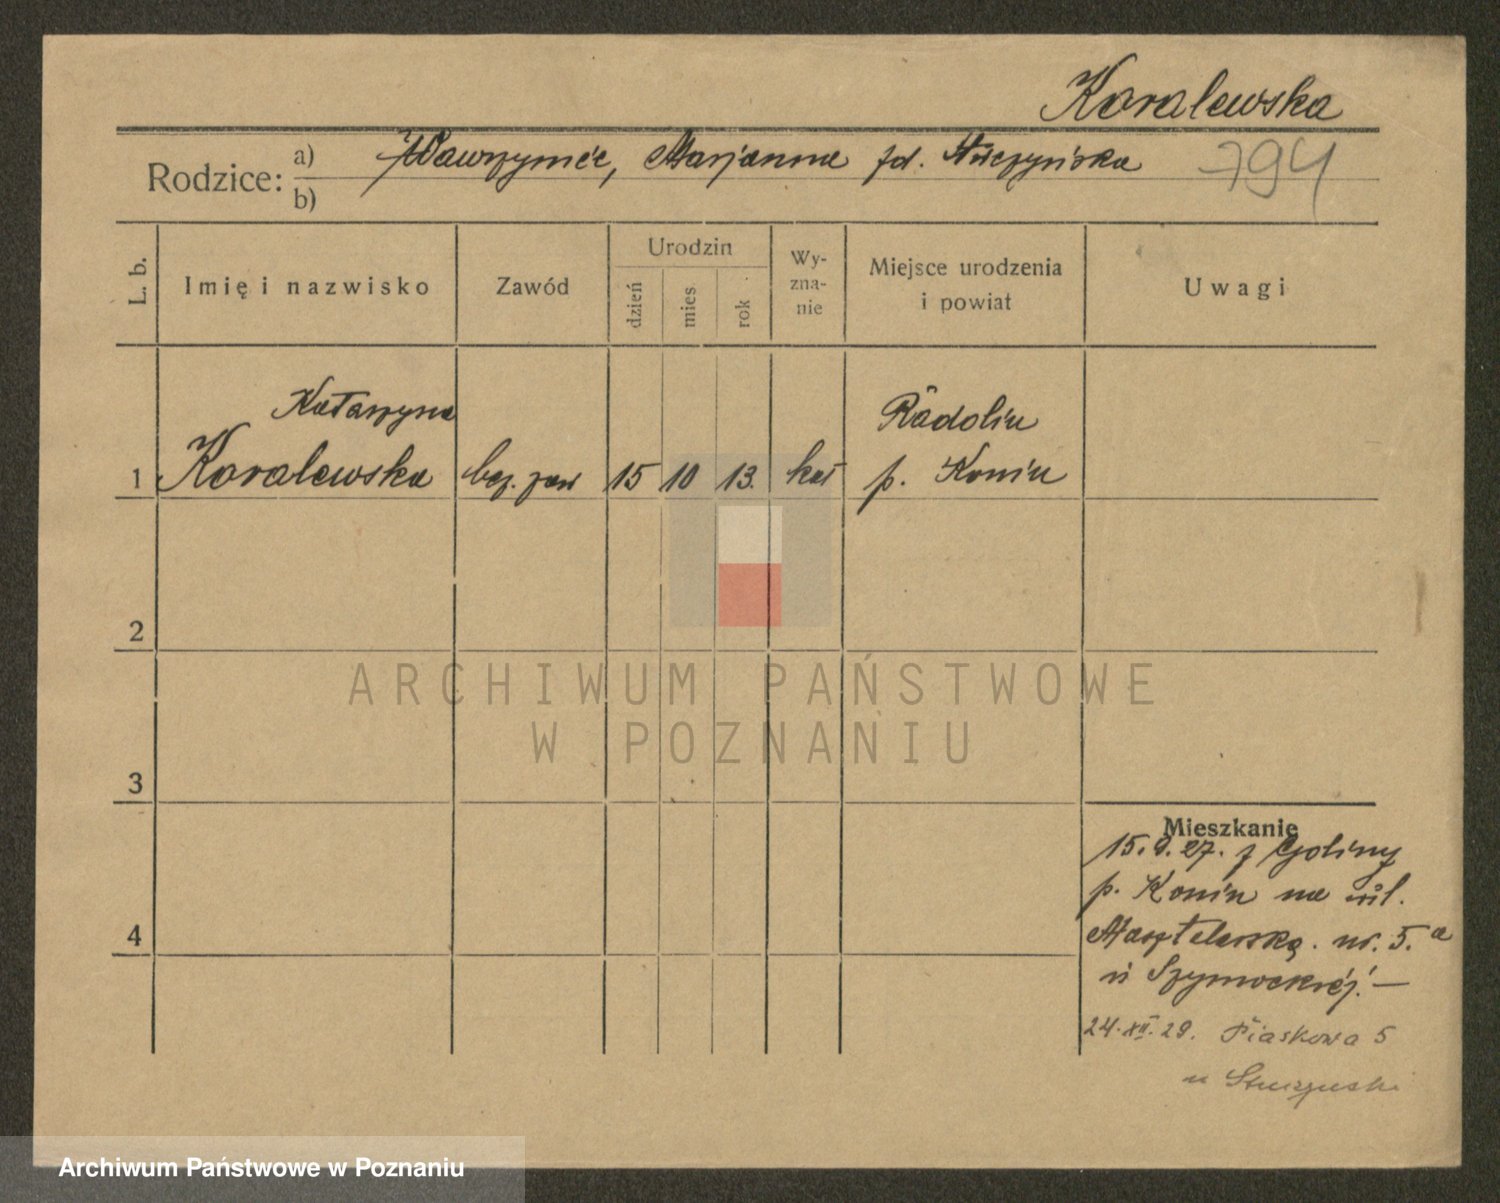 Koralewska
Rodzice: a) Wawrzyniec, Marjanna zd.
794
b)
L. b.
Imię i nazwisko
Zawód
Urodzin
dzień
mies
rok
Wy-
zna-
nie
Miejsce urodzenia
i powiat
Uwagi
Katarzyna
Radolin
1 Koralewska bez. zaw 15 10 13. kat p. Konin
2
3
4
Mieszkanie
15.9.27. z Goliny
p. Konin na ul.
Masztelarską. nr. 5.a
u
24.XII.29. Piaskowa 5
u
ARCHIWUM PAŃSTWOWE
W POZNANIU
Archiwum Państwowe w Poznaniu